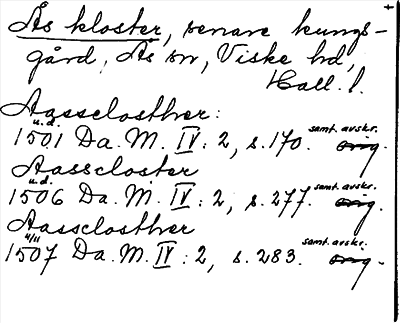 Ås kloster, senare kungs-
gård, Ås sn, Viske hd,
Hall. l.
Aassclosther:
u.d. samt. avskr.
1501 Da. M. IV: 2, s. 170. orig.
Aasscloster
u.d. samt. avskr.
1506 Da. M. IV: 2, s. 277. orig.
Aassclosther
4/11 samt. avskr.
1507 Da. M. IV: 2, s. 283. orig.